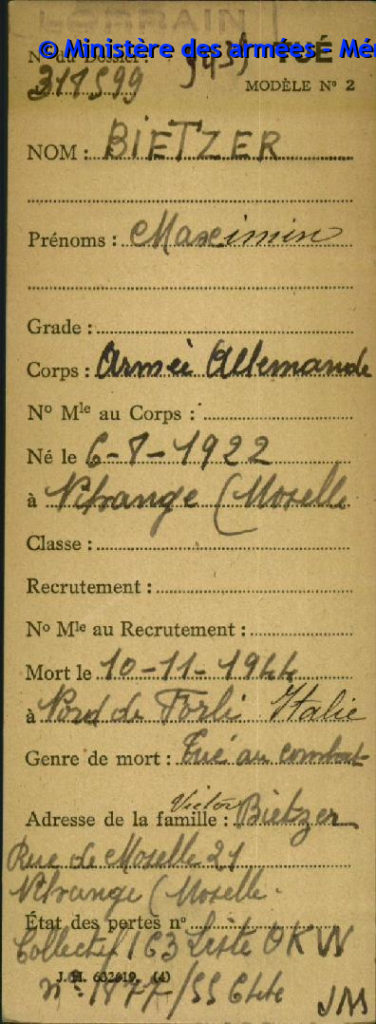 LORRAIN
© Ministère des armées - Mé
N° du Dossier: 39-45 TUÉ
317599 MODÈLE N° 2
NOM : BIETZER
Prénoms : Maximin
Grade :
Corps : Armée Allemande
N° Mle au Corps :
Né le 6-7-1922
à Nilvange (Moselle
Classe :
Recrutement :
N° Mle au Recrutement :
Mort le 10-11-1944
à Nord de Forli Italie
Genre de mort : Tué au combat
Adresse de la famille : Victor Bietzer
Rue de Moselle 21
Nilvange (Moselle.
État des pertes n°
Collectif 163 Liste OKW
J. H. 632619. (4)
n° 1877/SS
JM